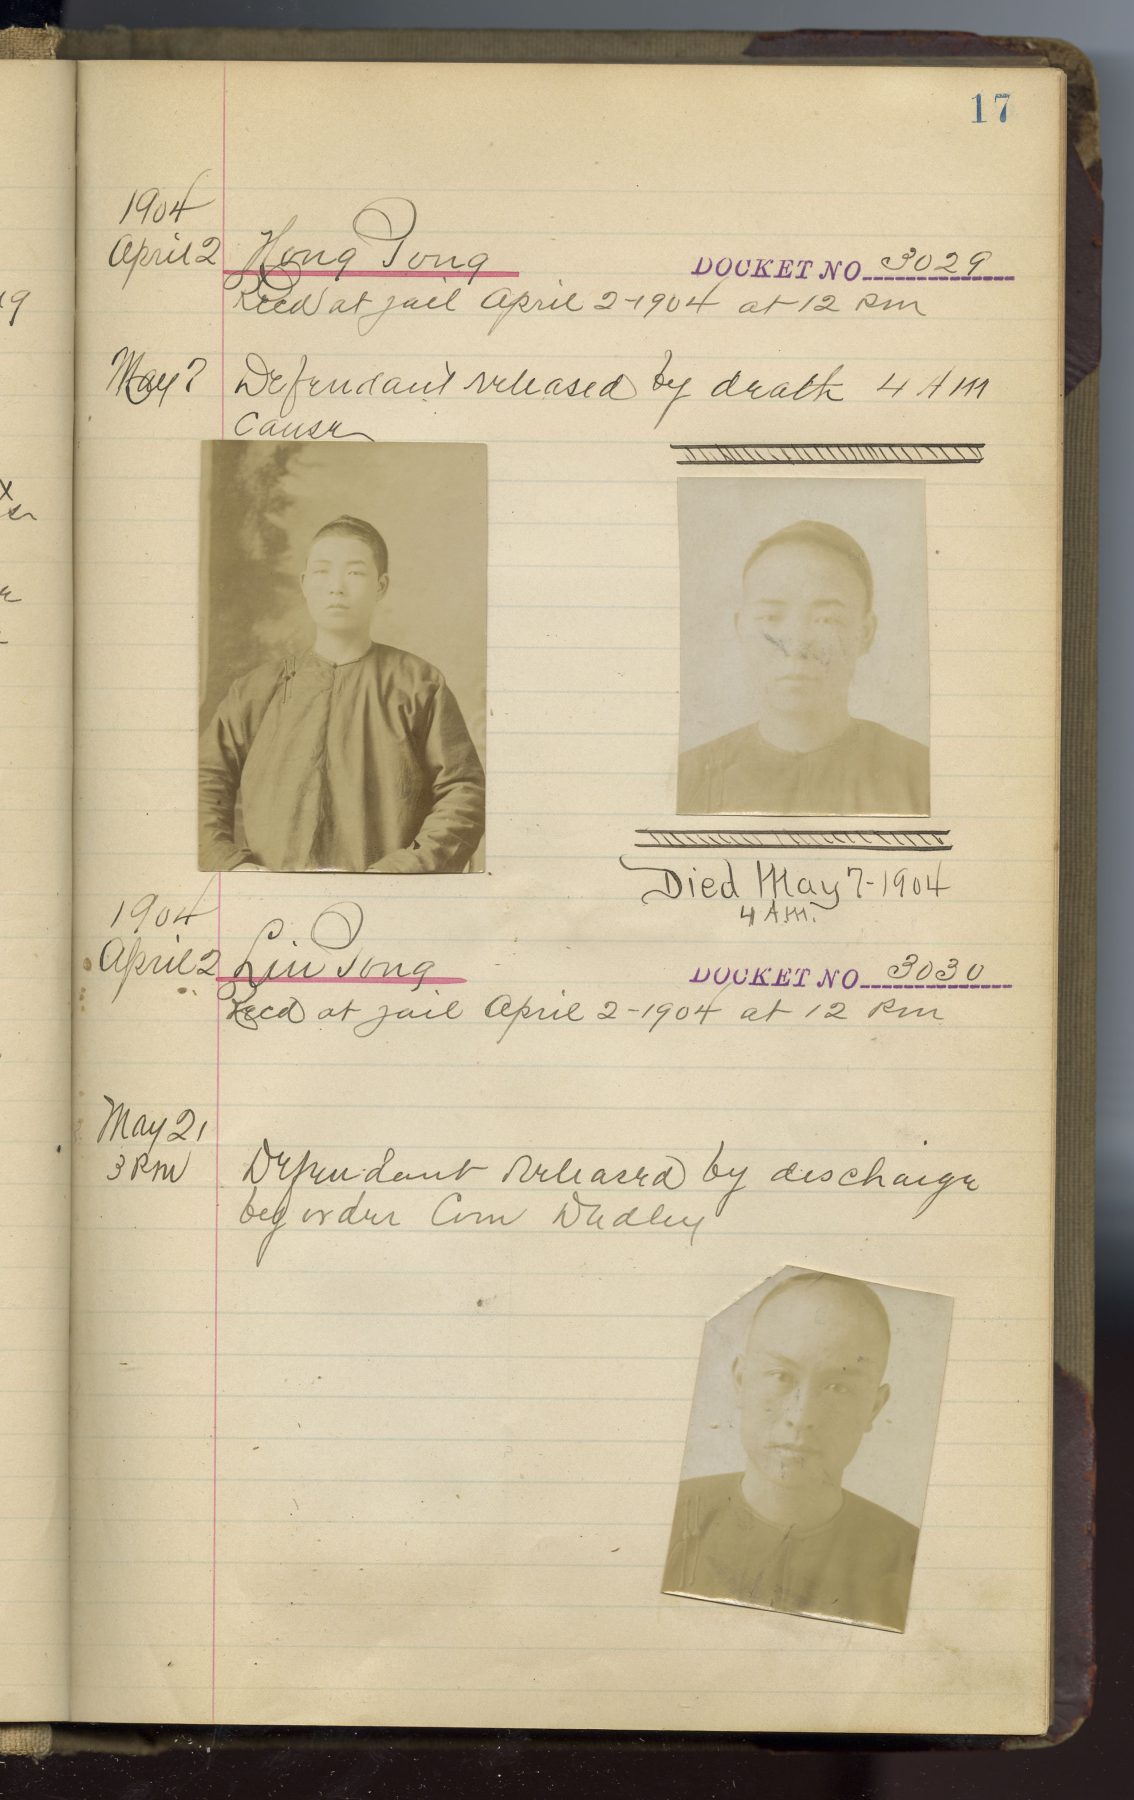 17
1904
April 2 Hong Tong DOCKET NO 3029
Recd at jail April 2-1904 at 12 Pm
May 7 Defendant released by death 4 AM
Cause
Died May 7-1904
4 A.M.
1904
April 2 Lin Tong DOCKET NO 3030
Recd at jail April 2-1904 at 12 Pm
May 21
3 Pm Defendant released by discharge
by order Com Dudley